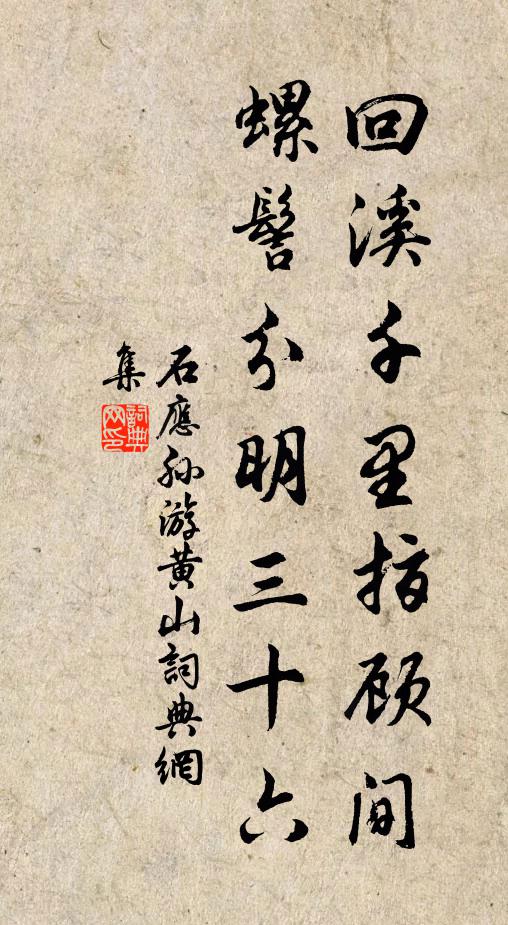 回溪千里指顾间
螺髻分明三十六
石應孙游黄山詞典網
集
詞典
网印